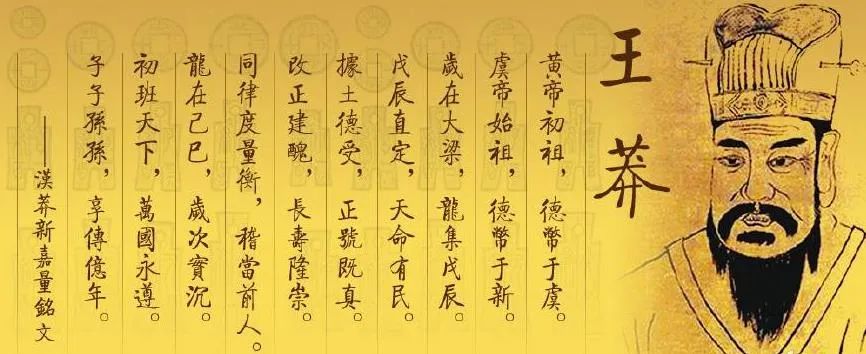 王莽
黃帝初祖,德幣于虞。
虞帝始祖,德幣于新。
歲在大梁,龍集戊辰。
戊辰直定,天命有民。
據土德受,正號既真。
改正建醜,長壽隆崇。
同律度量衡,稽當前人。
龍在己巳,歲次實沉。
初班天下,萬國永遵。
子子孫孫,享傳億年。
——漢莽新嘉量銘文